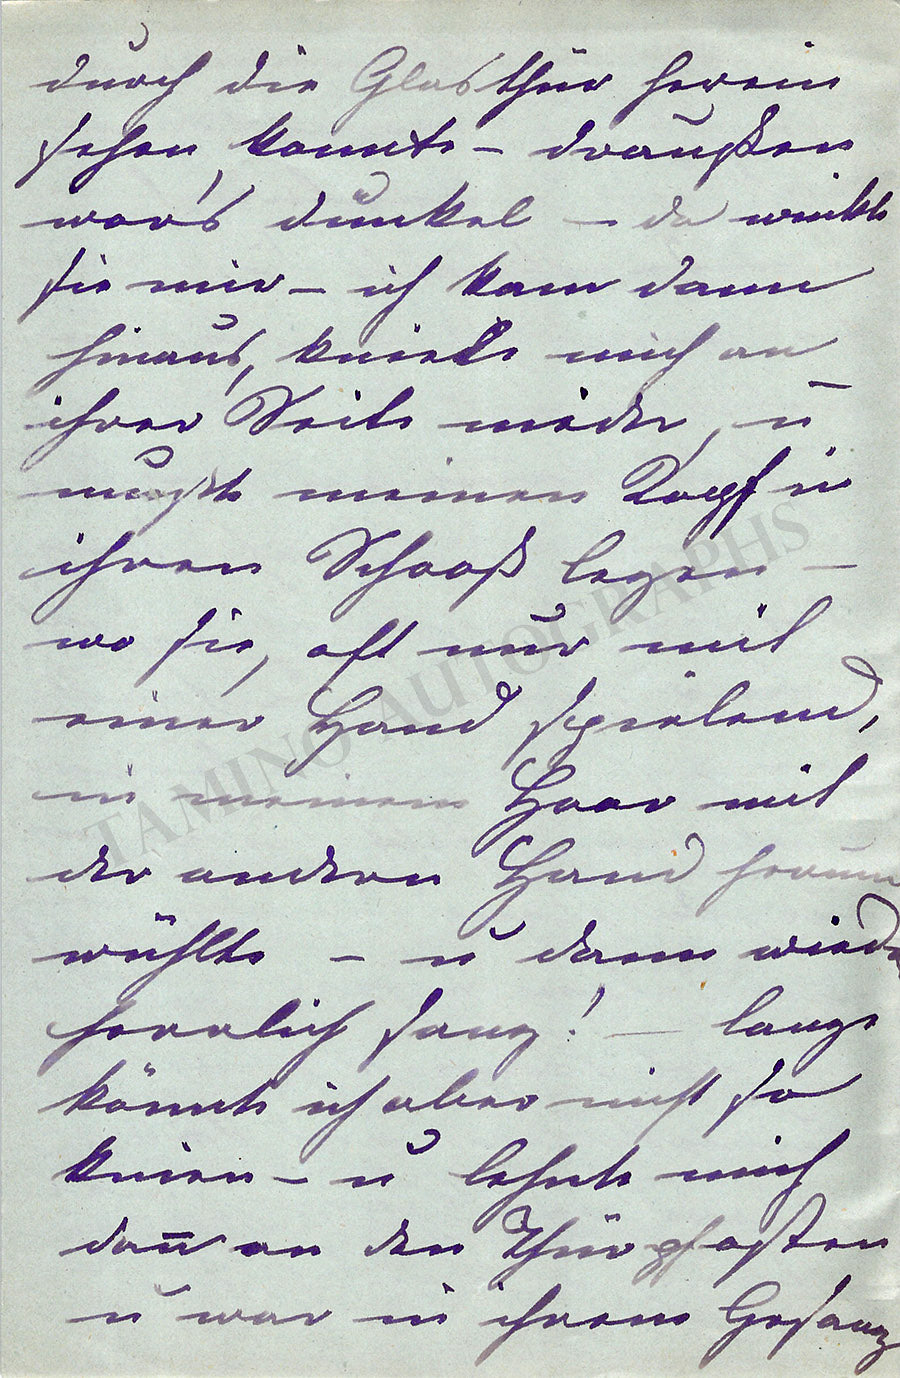 durch die Glasthür herein
sehen konnte – draußen
war's dunkel – da winkte
sie mir – ich kam dann
hinaus, kniete mich an
ihrer Seite nieder, u
mußte meinen Kopf in
ihren Schooß legen –
wo sie, oft nur mit
einer Hand spielend,
in meinem Haar mit
der andern Hand herum
wühlte – u dann wieder
herrlich sang! – lange
könnte ich aber nicht so
knien – u lehnte mich
dan̅ an den Thürpfosten
u war in ihrem Gesang
TAMINO AUTOGRAPHS